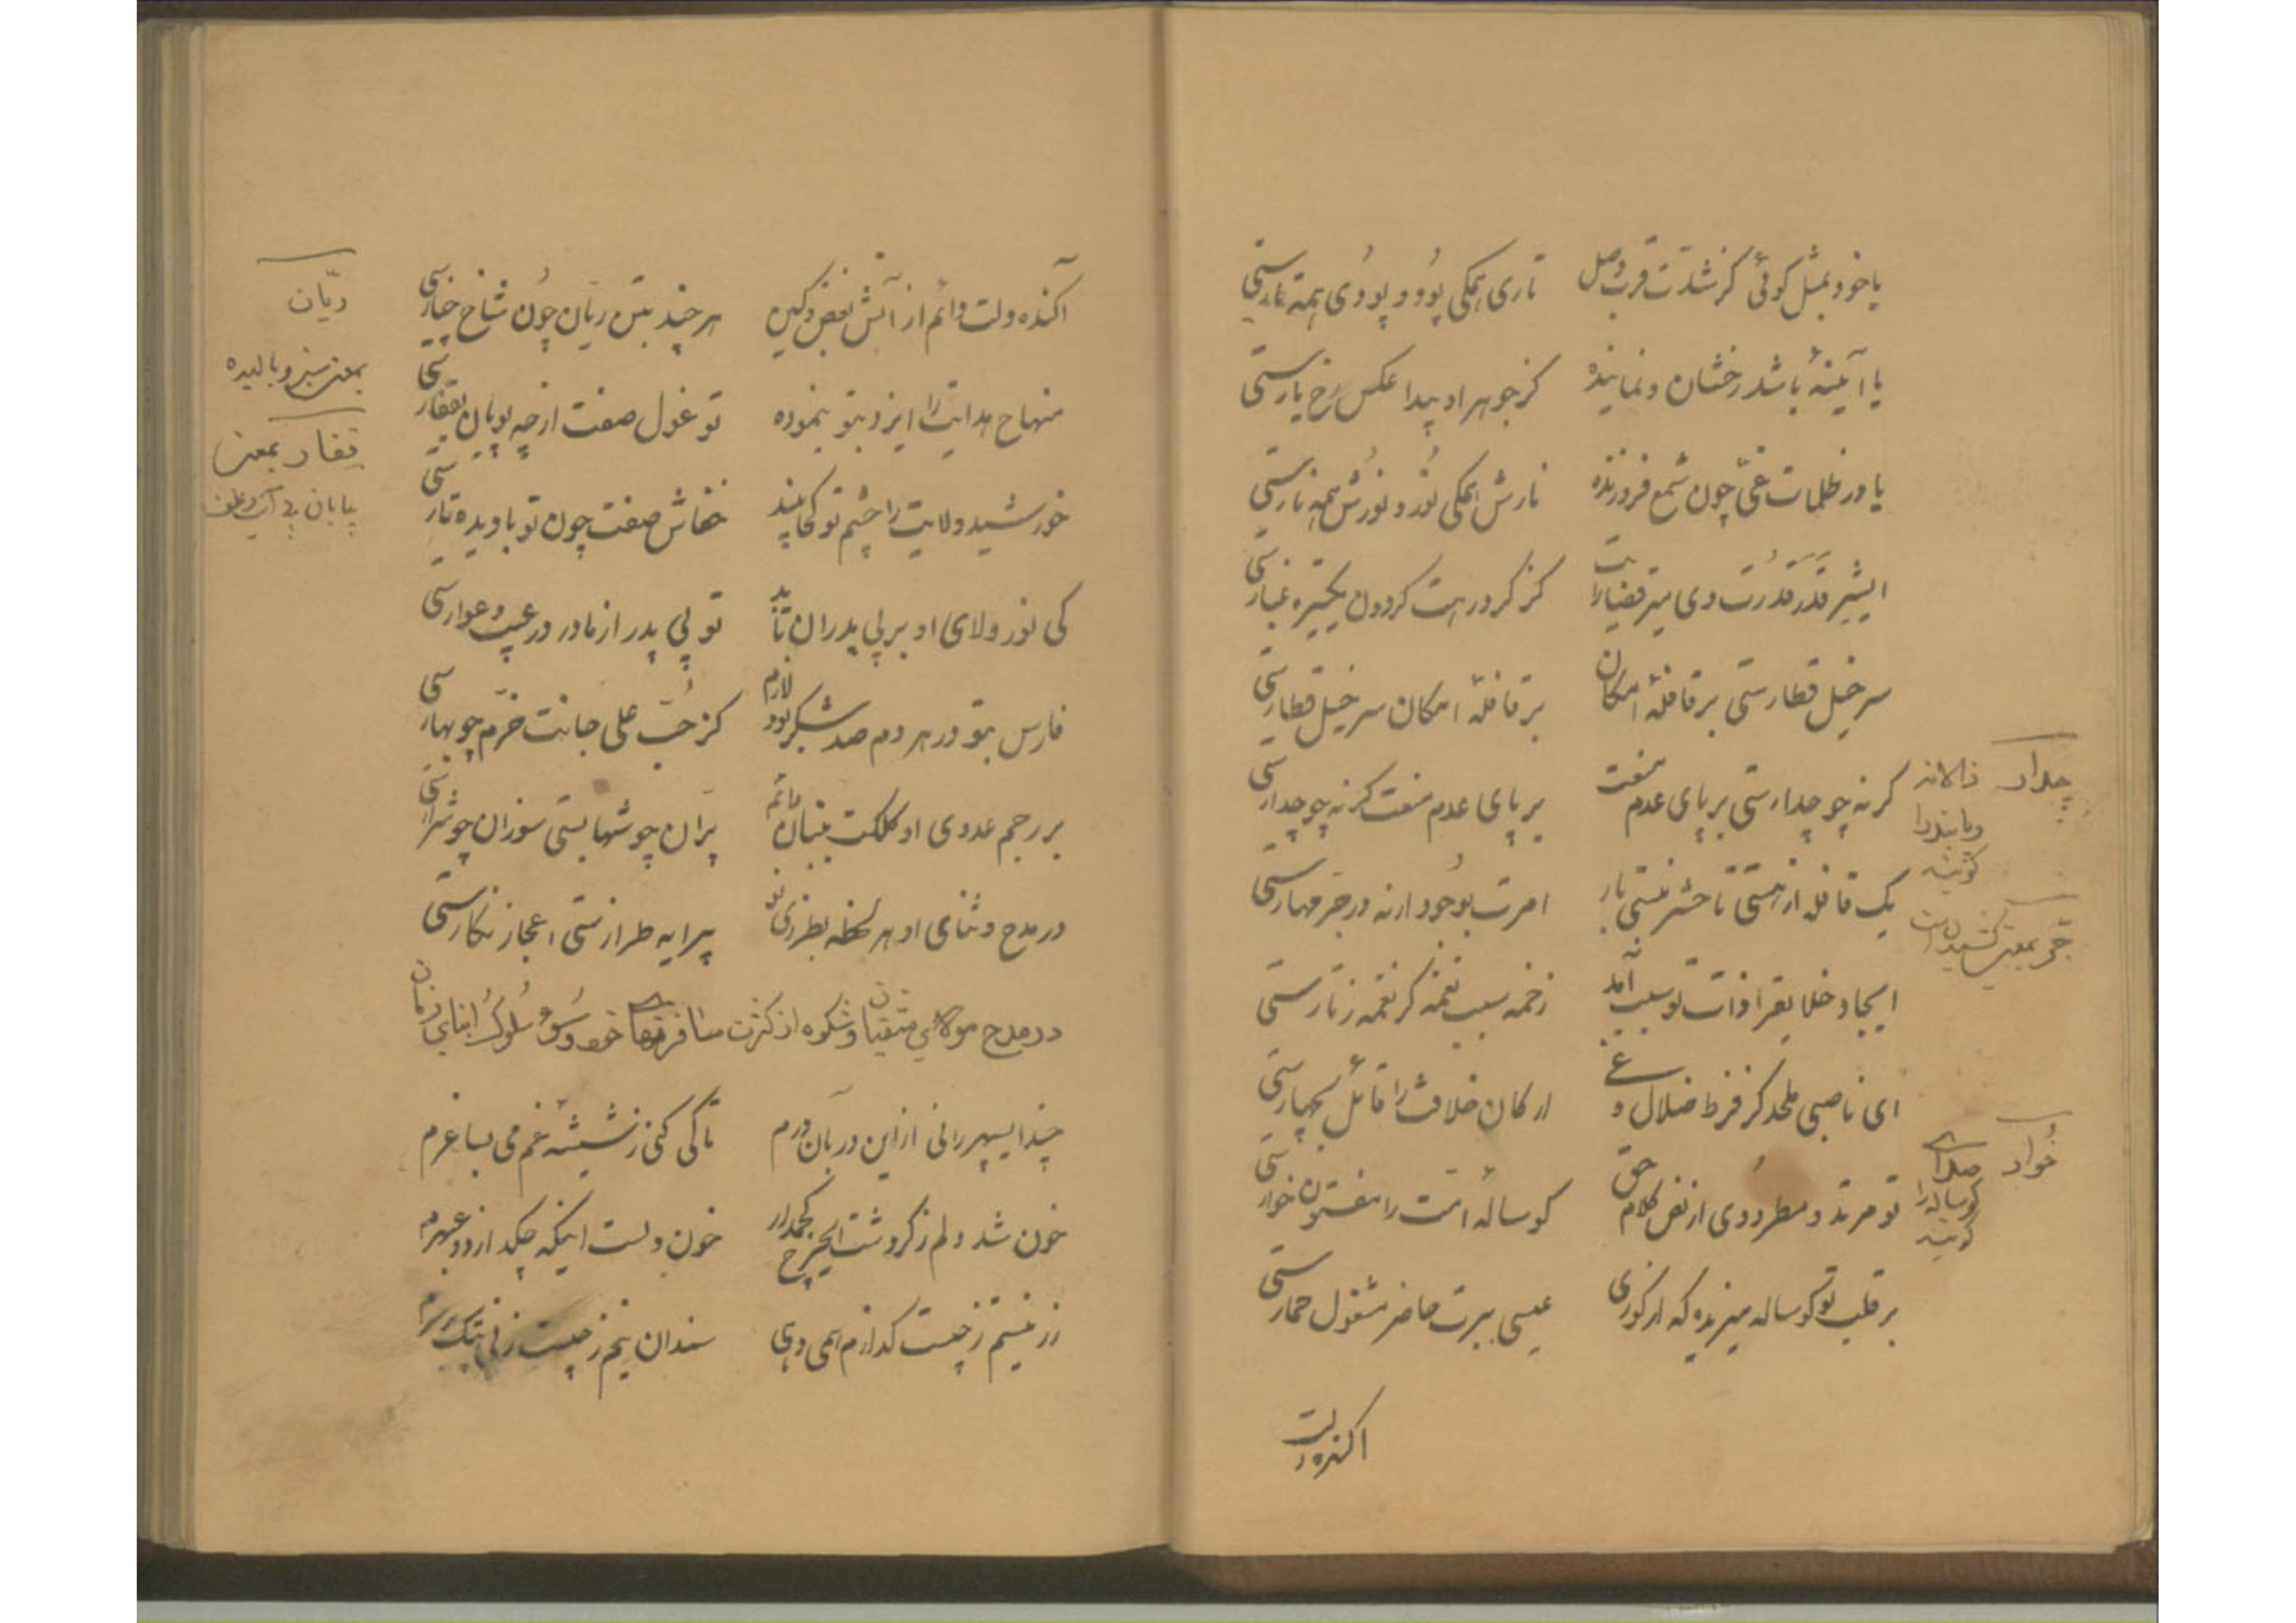 یا خود بمثل کوئی کز شدّت قرب وصل تاری همکی پود و پودی همه تارستی
یا آیینهٔ باشد رخشان و نماینده کز جوهر او پیدا عکس رخ یارستی
یا در ظلمات غیّ چون شمع فروزنده نارش همکی نور و نورش همه نارستی
ای شیر قدر قدرت وی میر قضا رایت کز کرد رهت کردون یکتیره غبارستی
سرخیل قطارستی بر قافلهٔ امکان بر قافلهٔ امکان سرخیل قطارستی
کرنه چو چدارستی بر پای عدم منعت بر پای عدم منعت کرنه چو چدارستی
یک قافله از هستی تا حشر نبستی بار امرت بوجود ارنه در جرّ مهارستی
ایجاد خلایقرا ذات تو سبب آمد زخمه سبب نغمه کر نغمه ز تارستی
ای ناصبی ملحد کز فرط ضلال و غی ارکان خلافت را قائل بچهارستی
تو مرتد و مطرودی از نص کلام حق کوسالهٔ امّت را مفتون خوارستی
بر قلب تو کوساله میزیده که از کوری عیسی ببرت حاضر مشغول حمارستی
اکنده دلت
چدار
ذالانه
و پابند را
کویند
جرّ بمعنی کشیدن است
خُوار
صدای
کوساله را
کویند
آکنده دلت دائم از آتش بغض و کین هر چند بتن ریّان چون شاخ خیارستی
منهاج هدایت را ایزد بتو بنموده تو غول صفت از چه پویان بقفارستی
خورشید ولایت را چشم تو کجا بیند خفاش صفت چون تو با دیده تارستی
کی نور ولای او بر بی پدران تابد تو بی پدر از مادر در عیب و عوارستی
فارس بتو در هر دم صد شکر بود لازم کز حُبّ علی جانت خرّم چو بهارستی
بر رجم عدوی او کلکت ببنان دائم پرّان چو شهابستی سوزان چو شرارستی
در مدح و ثنای او هر لحظه بطرزی نو پیرایه طرازستی اعجاز نکارستی
در مدح مولای متقیان و شکوه از کثرت مسافرتهای خود و سُوء سُلوک ابنای زمان
چند ایسپهر رانی از این در بآن درم تا کی کنی ز شیشه غم می بساغرم
خون شد دلم ز کردشت ایچرخ کجمدار خون دلست اینکه چکد از دو عبهرم
زر نیستم ز چیست کدازم همی دهی سندان نیم ز چیست زنی پتک بر سرم
ریّان
بمعنی سبز و بالیده
قفار بمعنی
بیابان بی آب و علف